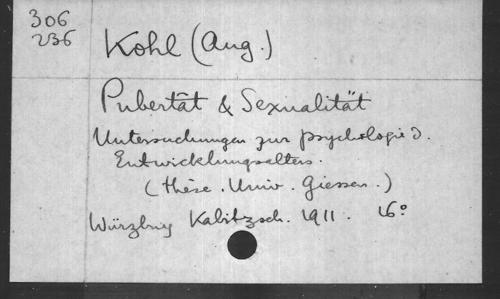 306
236
Kohl (Aug.)
Pubertät & Sexualität
Untersuchungen zur Psychologie d.
Entwicklungsalters.
(thèse. Univ. Giessen.)
Würzburg Kabitzsch. 1911. 16º